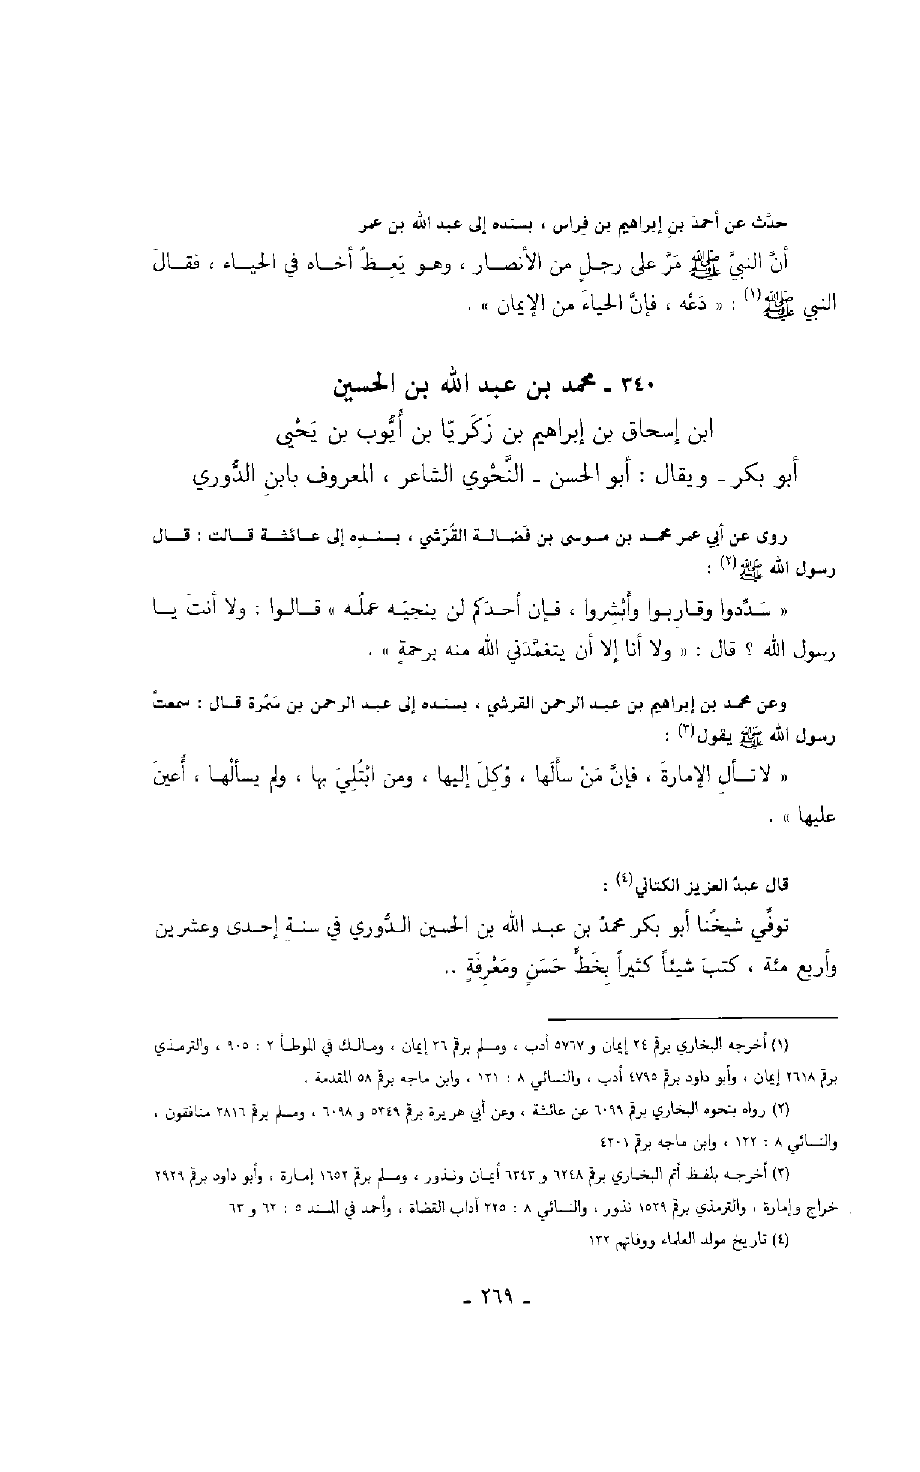 حدَّث عن أحمدَ بنِ إبراهيم بن فِراس ، بسنده إلى عبد الله بن عمر
أنَّ النبيَّ ﷺ مَرَّ على رجلٍ من الأنصار ، وهو يَعِظُ أخاه في الحياء ، فقالَ
النبي ﷺ(١) : « دَعْه ، فإنَّ الحياءَ من الإيمان » .
٣٤٠ ـ محمد بن عبد الله بن الحسين
ابن إسحاق بن إبراهيم بن زَكَريّا بن أَيُّوب بن يَحْيى
أبو بكر ـ ويقال : أبو الحسن ـ النَّحْوي الشاعر ، المعروف بابنِ الدُّوري
روى عن أبي عمر محمد بن موسى بن فَضالة القُرَشي ، بسنده إلى عائشة قالت : قال
رسول الله ﷺ(٢) :
« سَدِّدوا وقاربوا وأَبْشِروا ، فإن أحدَكم لن ينجيَه عملُه » قالوا : ولا أنتَ يا
رسول الله ؟ قال : « ولا أنا إلا أن يتغمَّدَني الله منه برحمةٍ » .
وعن محمد بن إبراهيم بن عبد الرحمن القرشي ، بسنده إلى عبد الرحمن بن سَمُرة قال : سمعتُ
رسول الله ﷺ يقول(٣) :
« لا تسألِ الإمارةَ ، فإنَّ مَنْ سألَها ، وُكِلَ إليها ، ومن ابْتُلِيَ بها ، ولم يسألْها ، أُعينَ
عليها » .
قال عبدُ العزيز الكتاني(٤) :
توفِّي شيخُنا أبو بكر محمدُ بن عبد الله بن الحسين الدُّوري في سنةِ إحدى وعشرين
وأربع مئة ، كتبَ شيئاً كثيراً بِخَطٍّ حَسَنٍ ومَعْرِفَةٍ ..
(١) أخرجه البخاري برقم ٢٤ إيمان و ٥٧٦٧ أدب ، ومسلم برقم ٣٦ إيمان ، ومالك في الموطأ ٢ : ٩٠٥ ، والترمذي
برقم ٢٦١٨ إيمان ، وأبو داود برقم ٤٧٩٥ أدب ، والنسائي ٨ : ١٢١ ، وابن ماجه برقم ٥٨ المقدمة .
(٢) رواه بنحوه البخاري برقم ٦٠٩٩ عن عائشة ، وعن أبي هريرة برقم ٥٣٤٩ و ٦٠٩٨ ، ومسلم برقم ٢٨١٦ منافقون ،
والنسائي ٨ : ١٢٢ ، وابن ماجه برقم ٤٢٠١
(٣) أخرجه بلفظ أتم البخاري برقم ٦٢٤٨ و ٦٣٤٣ أيمان ونذور ، ومسلم برقم ١٦٥٢ إمارة ، وأبو داود برقم ٢٩٢٩
خراج وإمارة ، والترمذي برقم ١٥٢٩ نذور ، والنسائي ٨ : ٢٢٥ آداب القضاة ، وأحمد في المسند ٥ : ٦٢ و ٦٣
(٤) تاريخ مولد العلماء ووفاتهم ١٣٢
ـ ٢٦٩ ـ